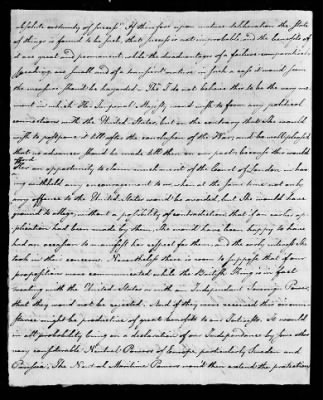 absolute certainty of success." If therefore upon mature deliberation the State
of things is found to be such, that success is not improbable, and the benefits of
it are great and permanent while the disadvantages of a failure comparatively
speaking are small and of a transient nature in such a case it would seem
the measure should be hazarded. Tho' I do not believe that to be the very mo-
ment in which Her Imperial Majesty would wish to form any political
connections with the United States, but on the contrary that She would
wish to postpone it till after the conclusion of the War, and be well pleased
that no advances should be made till then on our part because she would
have an opportunity to claim much merit of the Court of London in hav-
ing withheld any encouragement to us when at the same time not only
any offence to the United States would be avoided, but She would have
ground to alledge, without a possibility of contradiction that if an earlier ap-
plication had been made by them, She would have been happy to have
had an occasion to manifest her respect for them and the early interest She
took in their concerns. Nevertheless there is room to suppose that if our
propositions were communicated while the British King is in fact
treating with the United States as with an Independent Sovereign Power,
that they would not be rejected. And if they were received this in-
stance might be productive of great benefits to our Interests. It would
in all probability bring on a declaration of our Independence by some other
very considerable Neutral Powers of Europe particularly Sweden and
Prussia. The Neutral Maritime Powers would then extend the protection